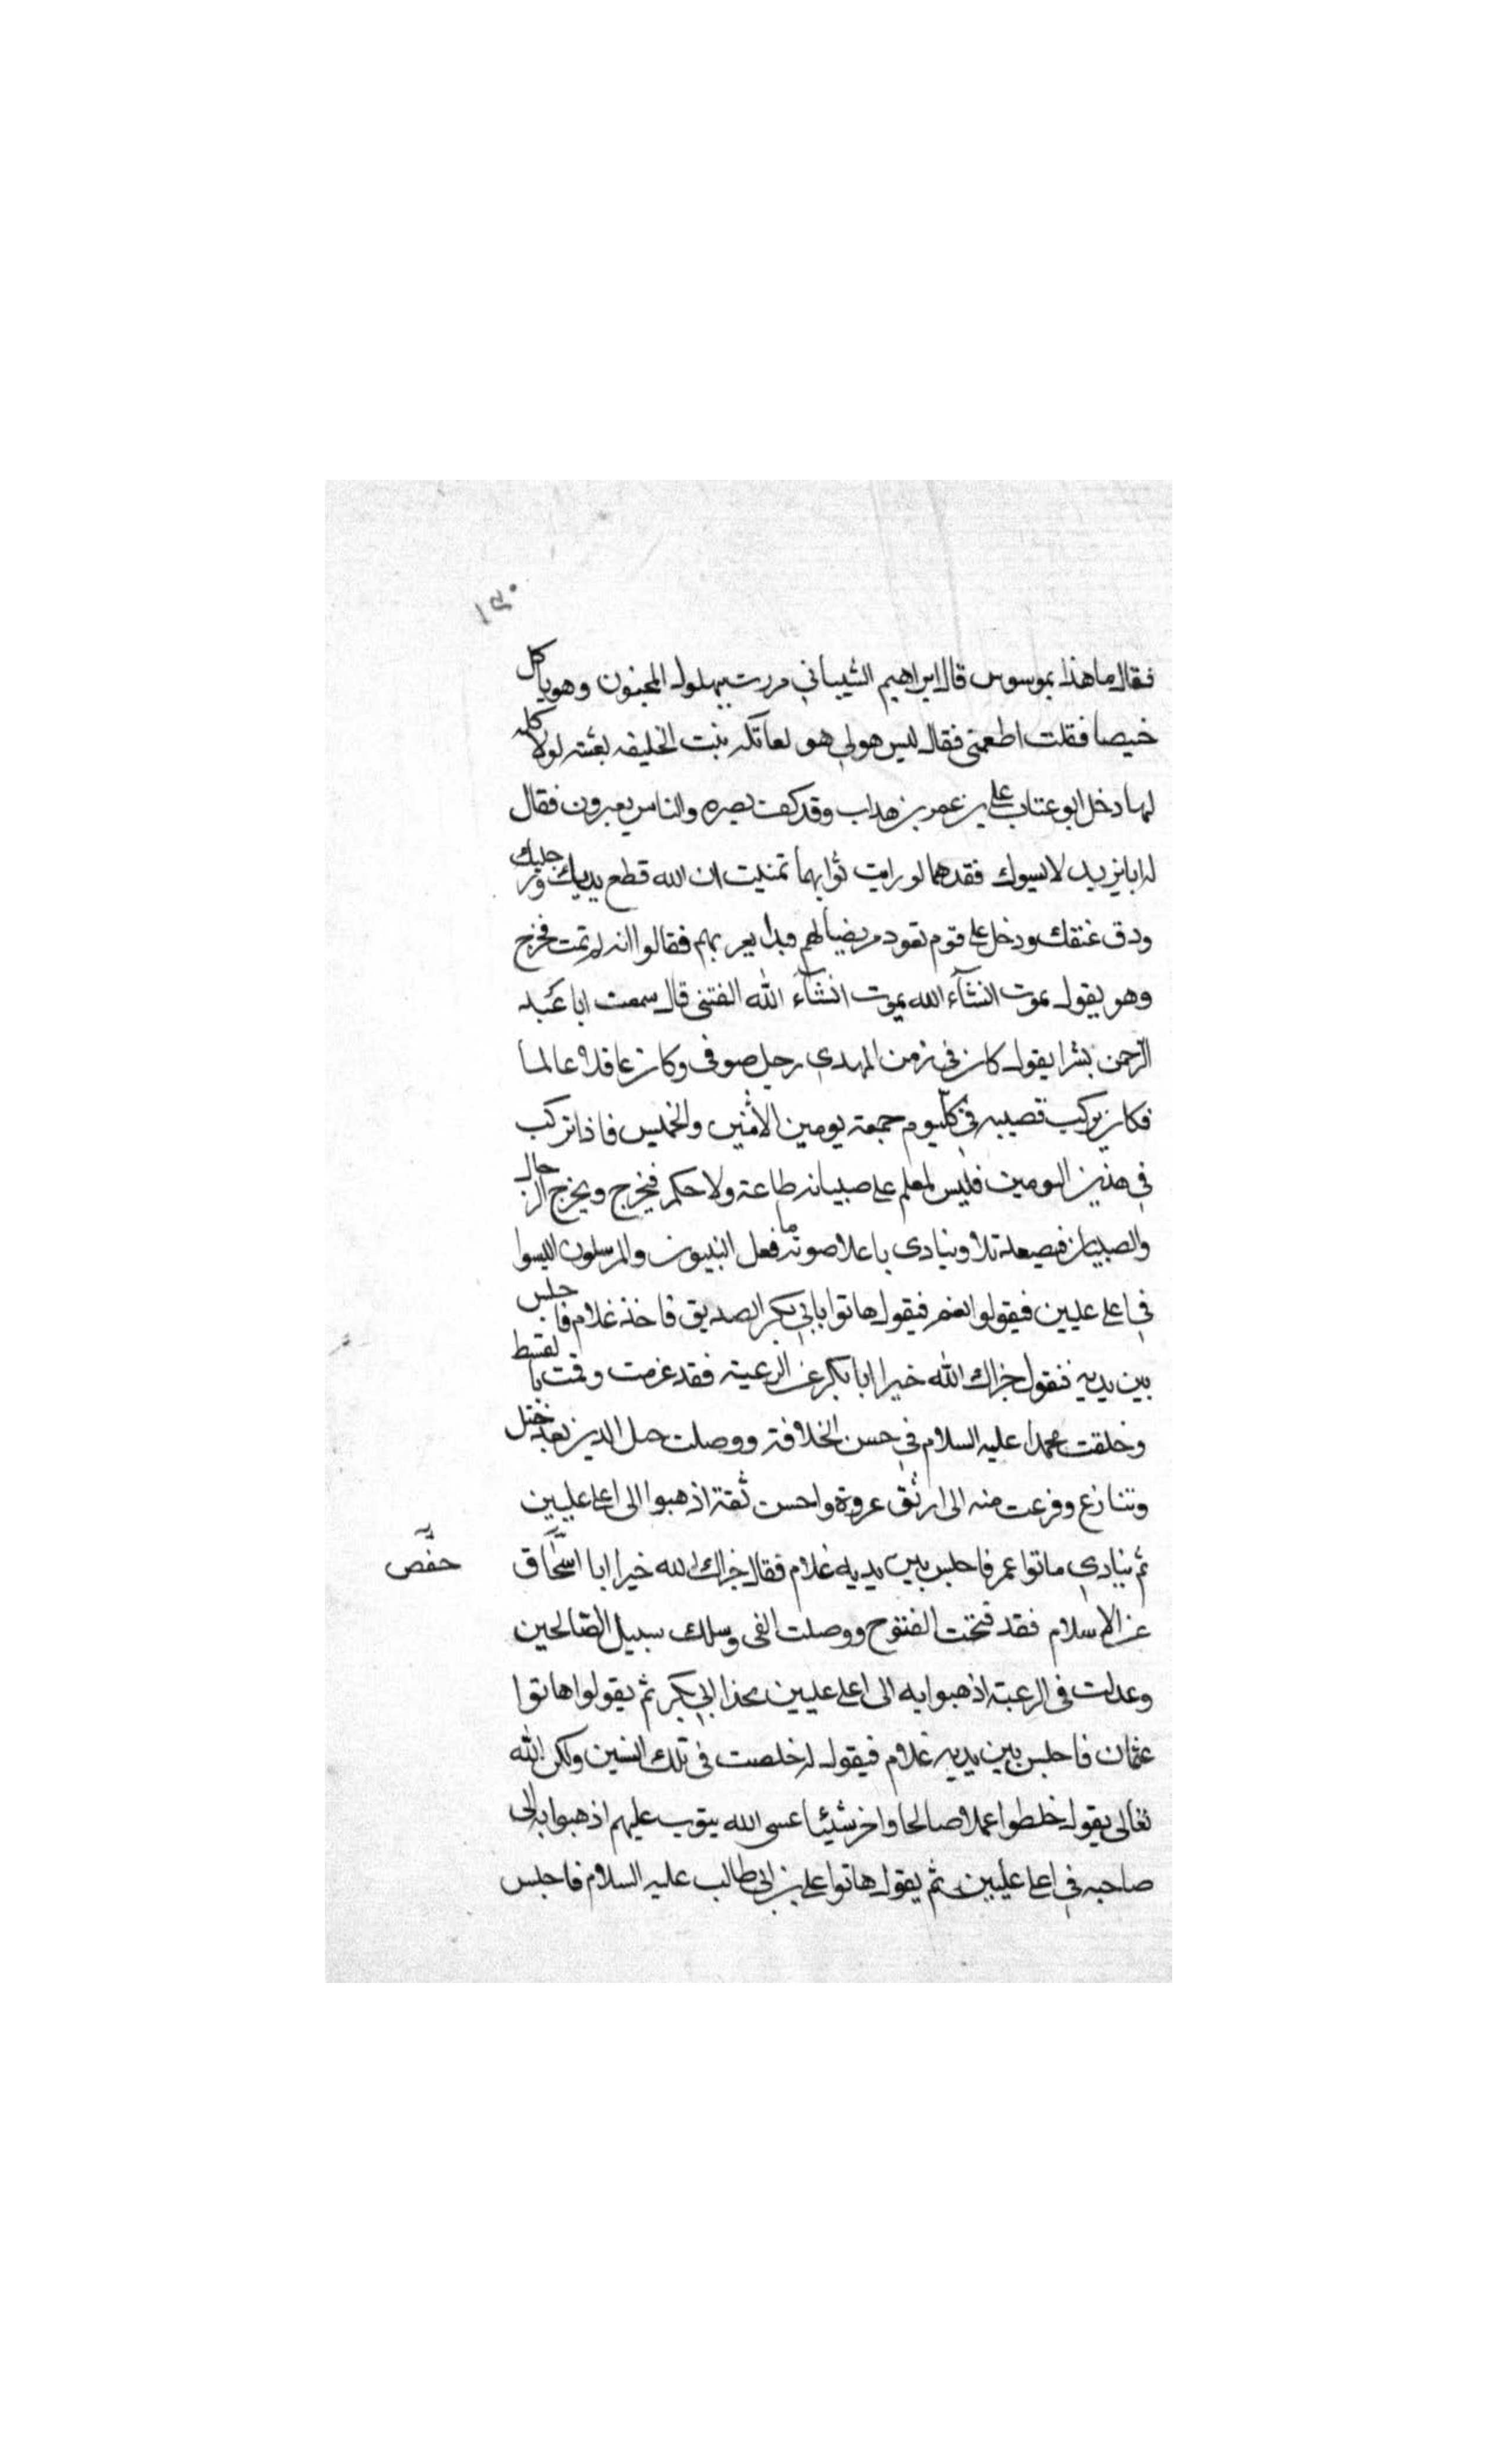 ١٣٠
فقال ما هذا بموسوس قال ابراهيم الشيباني مررت ببهلول المجنون وهو ياكل
خبيصا فقلت اطعمني فقال ليس هو لي هو لعاتكه بنت الخليفه بعثته لي لاكله
لها دخل ابو عتاب على بن عمر بن هداب وقد كف بصره والناس يعزون فقال
له ابا يزيد لا يسوك فقدهما لو رايت ثوابهما تمنيت ان الله قطع يديك ورجليك
ودق عنقك ودخل على قوم يعود مريضا لهم فبدا يعزيهم فقالوا انه لم يمت فخرج
وهو يقول يموت انشآء الله يموت انشآء الله الفتني قال سمعت ابا عبد
الرحمن بشرا يقول كان في زمن المهدي رجل صوفي وكان عاقلا عالما
فكان يركب قصبه في كل يوم جمعة يومين الاثنين والخميس فاذا تركب
في هذين اليومين فليس لمعلم على صبيانه طاعة ولا حكم فيخرج ويخرج الرجال
والصبيان فيصعد تلا وينادي باعلا صوته ما فعل النبيون والمرسلون اليسوا
في اعلى عليين فيقولوا نعم فيقول هاتوا بابي بكر الصديق فاخذ غلام فاجلس
بين يديه فيقول جزاك الله خيرا ابا بكر عن الرعية فقد عزمت وقمت بالقسط
وخلفت محمدا عليه السلام في حسن الخلافة ووصلت حبل الدين بعد ختل
وتنازع وفرعت منه الى اوثق عروة واحسن ثقة اذهبوا الى اعلا عليين
ثم ينادي هاتوا عمر فاجلس بين يديه غلام فقال جزاك الله خيرا ابا اسحاق
حفص
عن الاسلام فقد فتحت الفتوح ووصلت الفي وسلك سبيل الصالحين
وعدلت في الرعية اذهبوا به الى اعلى عليين بحذا ابي بكر ثم يقولوا هاتوا
عثمان فاجلس بين يديه غلام فيقول له خلصت في تلك السنين ولكن الله
تعالى يقول خلطوا عملا صالحا واخر شيئا عسى الله يتوب عليهم اذهبوا به الى
صاحبه في اعلا عليين ثم يقول هاتوا على بن ابي طالب عليه السلام فاجلس